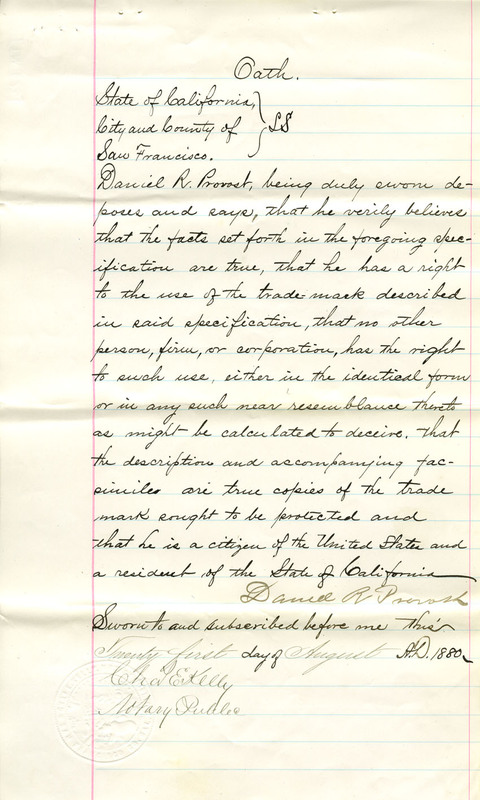 Oath.
State of California,
City and County of } SS
San Francisco.
Daniel R. Provost, being duly sworn de-
poses and says, that he verily believes
that the facts set forth in the foregoing spec-
ification are true, that he has a right
to the use of the trade-mark described
in said specification, that no other
person, firm, or corporation, has the right
to such use, either in the identical form
or in any such near resemblance thereto
as might be calculated to deceive. that
the description and accompanying fac-
similes are true copies of the trade
mark sought to be protected and
that he is a citizen of the United States and
a resident of the State of California
Daniel R Provost
Sworn to and subscribed before me this
Twenty first day of August A.D. 1880
Chas E Kelly
Notary Public